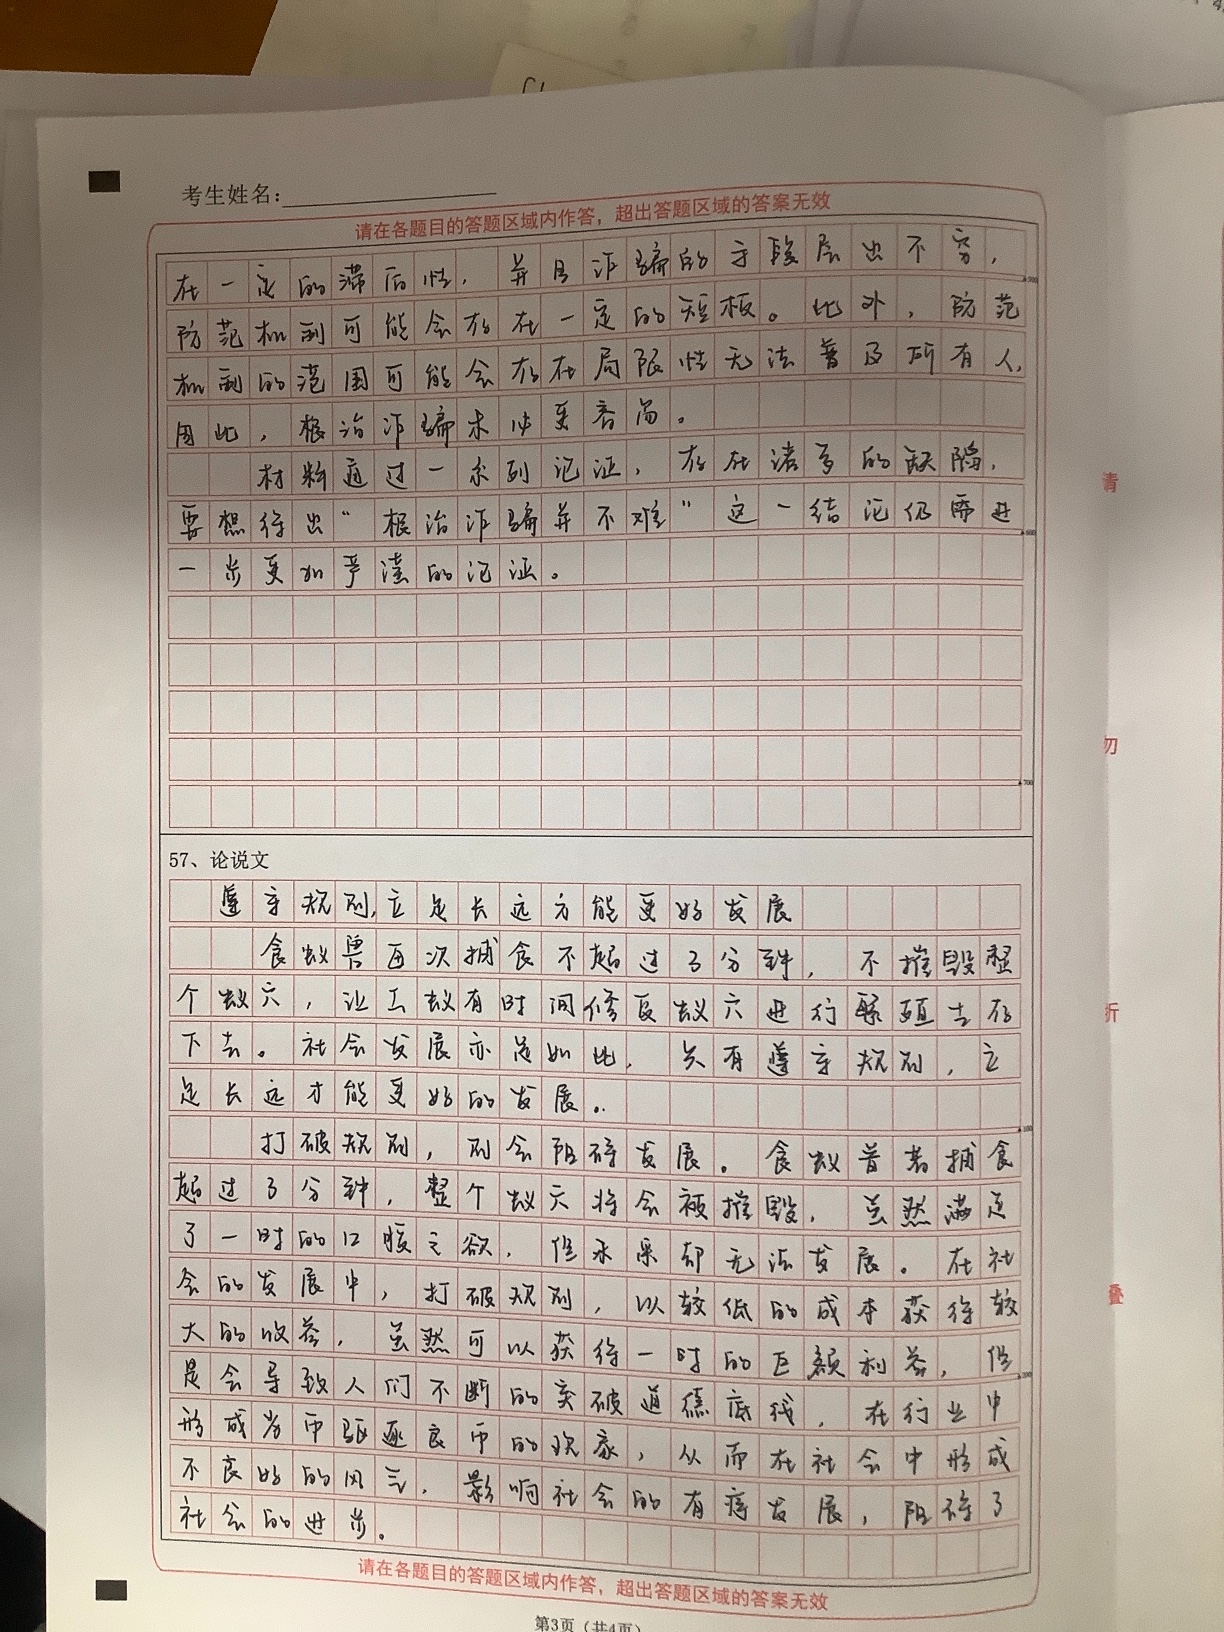 考生姓名：
请在各题目的答题区域内作答，超出答题区域的答案无效
在一定的滞后性，并且诈骗的手段层出不穷，
防范机制可能会存在一定的短板。此外，防范
机制的范围可能会存在局限性无法普及所有人，
因此，根治诈骗未必更容易。
材料通过一系列论证，存在诸多的缺陷，
要想得出“根治诈骗并不难”这一结论仍需进
一步更加严谨的论证。
57、论说文
遵守规则，立足长远方能更好发展
食蚁兽每次捕食不超过3分钟，不摧毁整
个蚁穴，让工蚁有时间修复蚁穴进行繁殖生存
下去。社会发展亦是如此，只有遵守规则，立
足长远才能更好的发展。
打破规则，则会阻碍发展。食蚁兽若捕食
超过3分钟，整个蚁穴将会被摧毁，虽然满足
了一时的口腹之欲，但未来却无法发展。在社
会的发展中，打破规则，以较低的成本获得较
大的收益，虽然可以获得一时的巨额利益，但
是会导致人们不断的突破道德底线，在行业中
形成劣币驱逐良币的现象，从而在社会中形成
不良好的风气，影响社会的有序发展，阻碍了
社会的进步。
请在各题目的答题区域内作答，超出答题区域的答案无效
第3页（共4页）
请
勿
折
叠